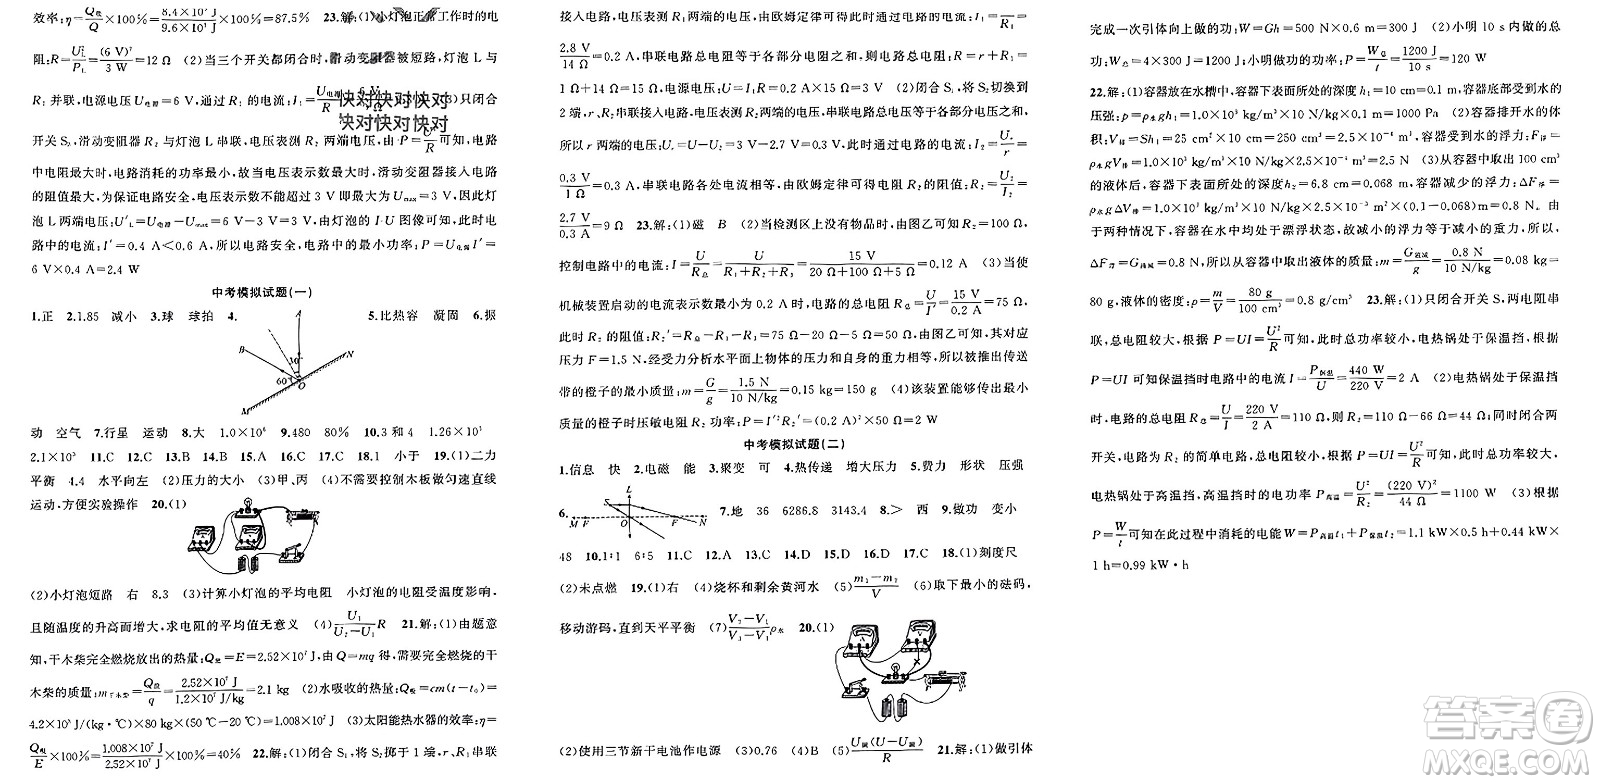 效率:η=Q吸/Q×100%=8.4×10⁷ J/9.6×10⁷ J×100%=87.5% 23.解:(1)小灯泡正常工作时的电
阻:R=U²L/PL=(6 V)²/3 W=12 Ω (2)当三个开关都闭合时,滑动变阻器被短路,灯泡 L 与
R₁ 并联,电源电压 U电源=6 V,通过 R₁ 的电流:I₁=U电源/R (3)只闭合
快对快对快对
快对快对快对
开关 S₁,滑动变阻器 R₂ 与灯泡 L 串联,电压表测 R₂ 两端电压,由 P=U²/R可知,电路
中电阻最大时,电路消耗的功率最小,故当电压表示数最大时,滑动变阻器接入电路
的阻值最大,为保证电路安全,电压表示数不能超过 3 V 即最大为 Umax=3 V,因此灯
泡 L 两端电压:U′L=U电源−Umax=6 V−3 V=3 V,由灯泡的 I-U 图像可知,此时电
路中的电流:I′=0.4 A<0.6 A,所以电路安全,电路中的最小功率:P=U电源I′=
6 V×0.4 A=2.4 W
中考模拟试题(一)
1.正 2.1.85 减小 3.球 球拍 4. 5.比热容 凝固 6.振
A
B
N
30°
60°
O
M
动 空气 7.行星 运动 8.大 1.0×10⁶ 9.480 80% 10.3 和 4 1.26×10³
2.1×10³ 11.C 12.C 13.B 14.B 15.A 16.C 17.C 18.1 小于 19.(1)二力
平衡 4.4 水平向左 (2)压力的大小 (3)甲、丙 (4)不需要控制木板做匀速直线
运动,方便实验操作 20.(1)
(2)小灯泡短路 右 8.3 (3)计算小灯泡的平均电阻 小灯泡的电阻受温度影响,
且随温度的升高而增大,求电阻的平均值无意义 (4)U₁/(U₂−U₁)R 21.解:(1)由题意
知,干木柴完全燃烧放出的热量:Q放=E=2.52×10⁷ J,由 Q=mq 得,需要完全燃烧干
木柴的质量:m干木柴=Q放/q=2.52×10⁷ J/1.2×10⁷ J/kg=2.1 kg (2)水吸收的热量:Q吸=cm(t−t₀)=
4.2×10³ J/(kg·℃)×80 kg×(50 ℃−20 ℃)=1.008×10⁷ J (3)太阳能热水器的效率:η=
Q吸/E×100%=1.008×10⁷ J/2.52×10⁷ J×100%=40% 22.解:(1)闭合 S₁,将 S₂ 掷于 1 端,r、R₁ 串联
接入电路,电压表测 R₁ 两端的电压,由欧姆定律可得电路的电流:I₁=U₁/R₁=
2.8 V/14 Ω=0.2 A,串联电路总电阻等于各部分电阻之和,则电路的总电阻:R=r+R₁=
1 Ω+14 Ω=15 Ω,电源电压:U=I₁R=0.2 A×15 Ω=3 V (2)闭合 S₁,将 S₂ 掷于
2 端,r、R₂ 串联接入电路,串联电路总电压等于各部分电压之和,
所以 r 两端的电压:Ur=U−U₂=3 V−2.7 V=0.3 V,此时通过电路的电流:I₂=Ur/r=
0.3 V/1 Ω=0.3 A,串联电路各处电流相等,由欧姆定律可得电阻 R₂ 的阻值:R₂=U₂/I₂=
2.7 V/0.3 A=9 Ω 23.解:(1)磁 B (2)当检测区上没有物品时,由图乙可知 R₂=100 Ω,
控制电路中的电流:I=U/R总=U/(R₁+R₂+R₃)=15 V/(20 Ω+100 Ω+5 Ω)=0.12 A (3)当使
机械装置启动的电流表示数最小为 0.2 A 时,电路的总电阻 R总=U/I′=15 V/0.2 A=75 Ω,
此时 R₂ 的阻值:R₂=R总−R₁−R₃=75 Ω−20 Ω−5 Ω=50 Ω,由图乙可知,其对应
压力 F=1.5 N,经受力分析水平面上物体的压力和自身的重力相等,所以被推出传送
带的橙子的最小质量:m=G/g=1.5 N/10 N/kg=0.15 kg=150 g (4)该装置能够传出最小
质量的橙子时压敏电阻 R₂ 功率:P=I′²R₂′=(0.2 A)²×50 Ω=2 W
中考模拟试题(二)
1.信息 快 2.电磁 能 3.聚变 可 4.热传递 增大压力 5.费力 形状 压强
6. 7.地 36 6286.8 3143.4 8.> 西 9.做功 变小
L
S
M F O F N
48 10.1∶1 6∶5 11.C 12.A 13.C 14.B 15.D 16.C 17.C 18.(1)刻度尺
(2)未点燃 19.(1)右 (4)烧杯和剩余黄河水 (5)(m₁−m₂)/V (6)取下最小的砝码,
移动游码,直到天平平衡 (7)(V₂−V₁)/(V₃−V₁)ρ水 20.(1)
(2)使用三节新干电池作电源 (3)0.76 (4)B (5)U额(U−U额)/R 21.解:(1)做引体
完成一次引体向上做的功:W=Gh=500 N×0.6 m=300 J (2)小明 10 s 内做的总
功:W总=4×300 J=1200 J;小明做功的功率:P=W总/t=1200 J/10 s=120 W
22.解:(1)容器放在水槽中,容器底部所处的深度 h₁=10 cm=0.1 m,容器底部受到水的
压强:p=ρ水gh₁=1.0×10³ kg/m³×10 N/kg×0.1 m=1000 Pa (2)容器排开水的体
积:V排=Sh₁=25 cm²×10 cm=250 cm³=2.5×10⁻⁴ m³,容器受到水的浮力:F浮=
ρ水gV排=1.0×10³ kg/m³×10 N/kg×2.5×10⁻⁴ m³=2.5 N (3)从容器中取出 100 cm³
的液体后,容器下表面所处的深度 h₂=6.8 cm=0.068 m,容器减少的浮力:ΔF浮=
ρ水gΔV排=1.0×10³ kg/m³×10 N/kg×2.5×10⁻³ m²×(0.1−0.068)m=0.8 N。由
于两种情况下,容器在水中均处于漂浮状态,故减小的浮力等于减小的重力,所以,
ΔF浮=G液减=0.8 N,所以从容器中取出液体的质量:m=G液减/g=0.8 N/10 N/kg=0.08 kg=
80 g,液体的密度:ρ=m/V=80 g/100 cm³=0.8 g/cm³ 23.解:(1)只闭合开关 S,两电阻串
联,电路的总电阻较大,根据 P=UI=U²/R可知,电路总功率较小,电热锅处于保温挡。根据
P=UI 可知保温挡时电路中的电流 I=P保温/U=440 W/220 V=2 A (2)电热锅处于保温挡
时,电路的总电阻 R总=U/I=220 V/2 A=110 Ω,则 R₂=110 Ω−66 Ω=44 Ω;闭合两
开关,电路为 R₂ 的简单电路,总电阻较小,根据 P=UI=U²/R可知,电路的总功率较大,
电热锅处于高温挡,高温挡时的电功率 P高温=U²/R₂=(220 V)²/44 Ω=1100 W (3)根据
P=W/t可知在此过程中消耗的电能 W=P高温t₁+P保温t₂=1.1 kW×0.5 h+0.44 kW×
1 h=0.99 kW·h
答案圈
MXQE.COM